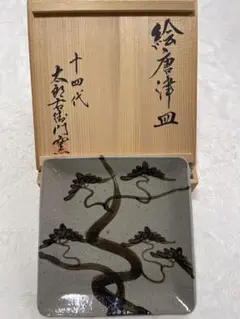 絵唐津皿
十四代
太郎右衛門窯